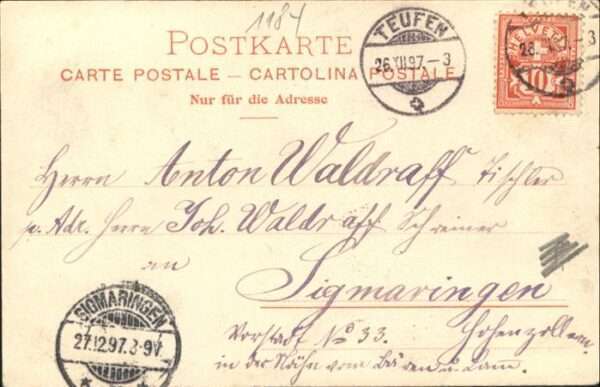 1184
POSTKARTE
CARTE POSTALE — CARTOLINA POSTALE
Nur für die Adresse
TEUFEN
26.XII.97.–3
TEUFEN
HELVETIA
10
Herrn Anton Waldraff Tischler
p. Adr. Herrn Joh. Waldraff Schreiner
in
Sigmaringen
Vorstadt No 33. Hohenzollern.
in der Nähe vom Bären u. Lamm.
SIGMARINGEN
27.12.97.8-9V